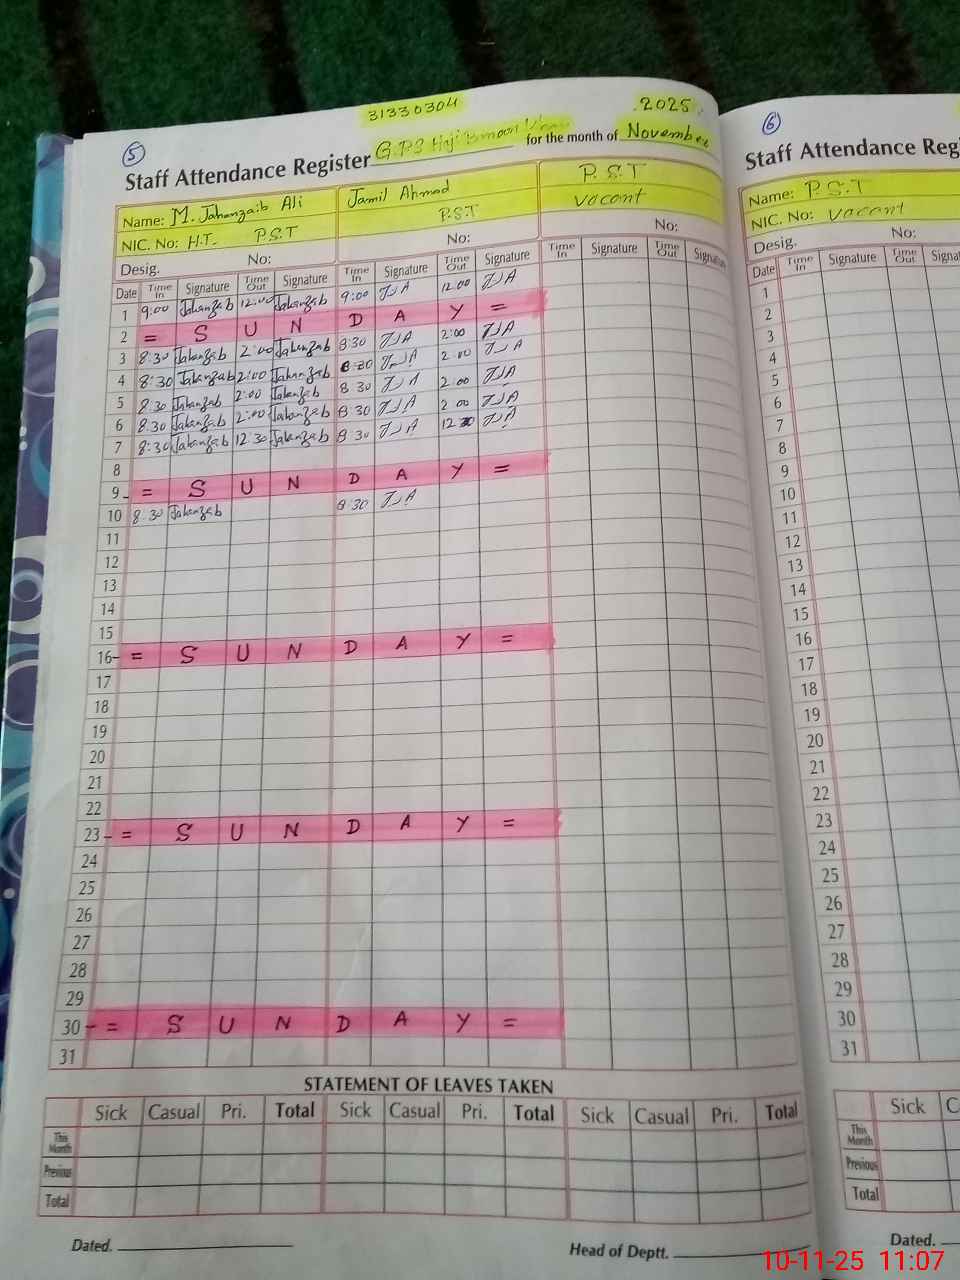 31330304
2025
5
Staff Attendance Register G.P.S Haji for the month of November
Name: M. Jahanzaib Ali Jamil Ahmad P.S.T
NIC. No: H.T. P.S.T P.S.T vacant
Desig. No: No: No:
Date Time In Signature Time Out Signature Time In Signature Time Out Signature Time In Signature Time Out Signature
1 9:00 Jahanzab 12:00 Jahanzab 9:00 JJA 12:00 JJA
2 = S U N D A Y =
3 8:30 Jahanzab 2:00 Jahanzab 8:30 JJA 2:00 JJA
4 8:30 Jahanzab 2:00 Jahanzab 8:30 JJA 2:00 JJA
5 8:30 Jahanzab 2:00 Jahanzab 8 30 JJA 2:00 JJA
6 8:30 Jahanzab 2:00 Jahanzab 8 30 JJA 2 00 JJA
7 8:30 Jahanzab 12 30 Jahanzab 8 30 JJA 12 30 JJA
8
9 = S U N D A Y =
10 8:30 Jahanzab 8 30 JJA
11
12
13
14
15
16 = S U N D A Y =
17
18
19
20
21
22
23 = S U N D A Y =
24
25
26
27
28
29
30 = S U N D A Y =
31
STATEMENT OF LEAVES TAKEN
Sick Casual Pri. Total Sick Casual Pri. Total Sick Casual Pri. Total
This Month
Previous
Total
Dated. Head of Deptt.
6
Staff Attendance Reg
Name: P.S.T
NIC. No: vacant
Desig. No:
Date Time In Signature Time Out Signat
1
2
3
4
5
6
7
8
9
10
11
12
13
14
15
16
17
18
19
20
21
22
23
24
25
26
27
28
29
30
31
Sick C
This Month
Previous
Total
Dated.
10-11-25 11:07